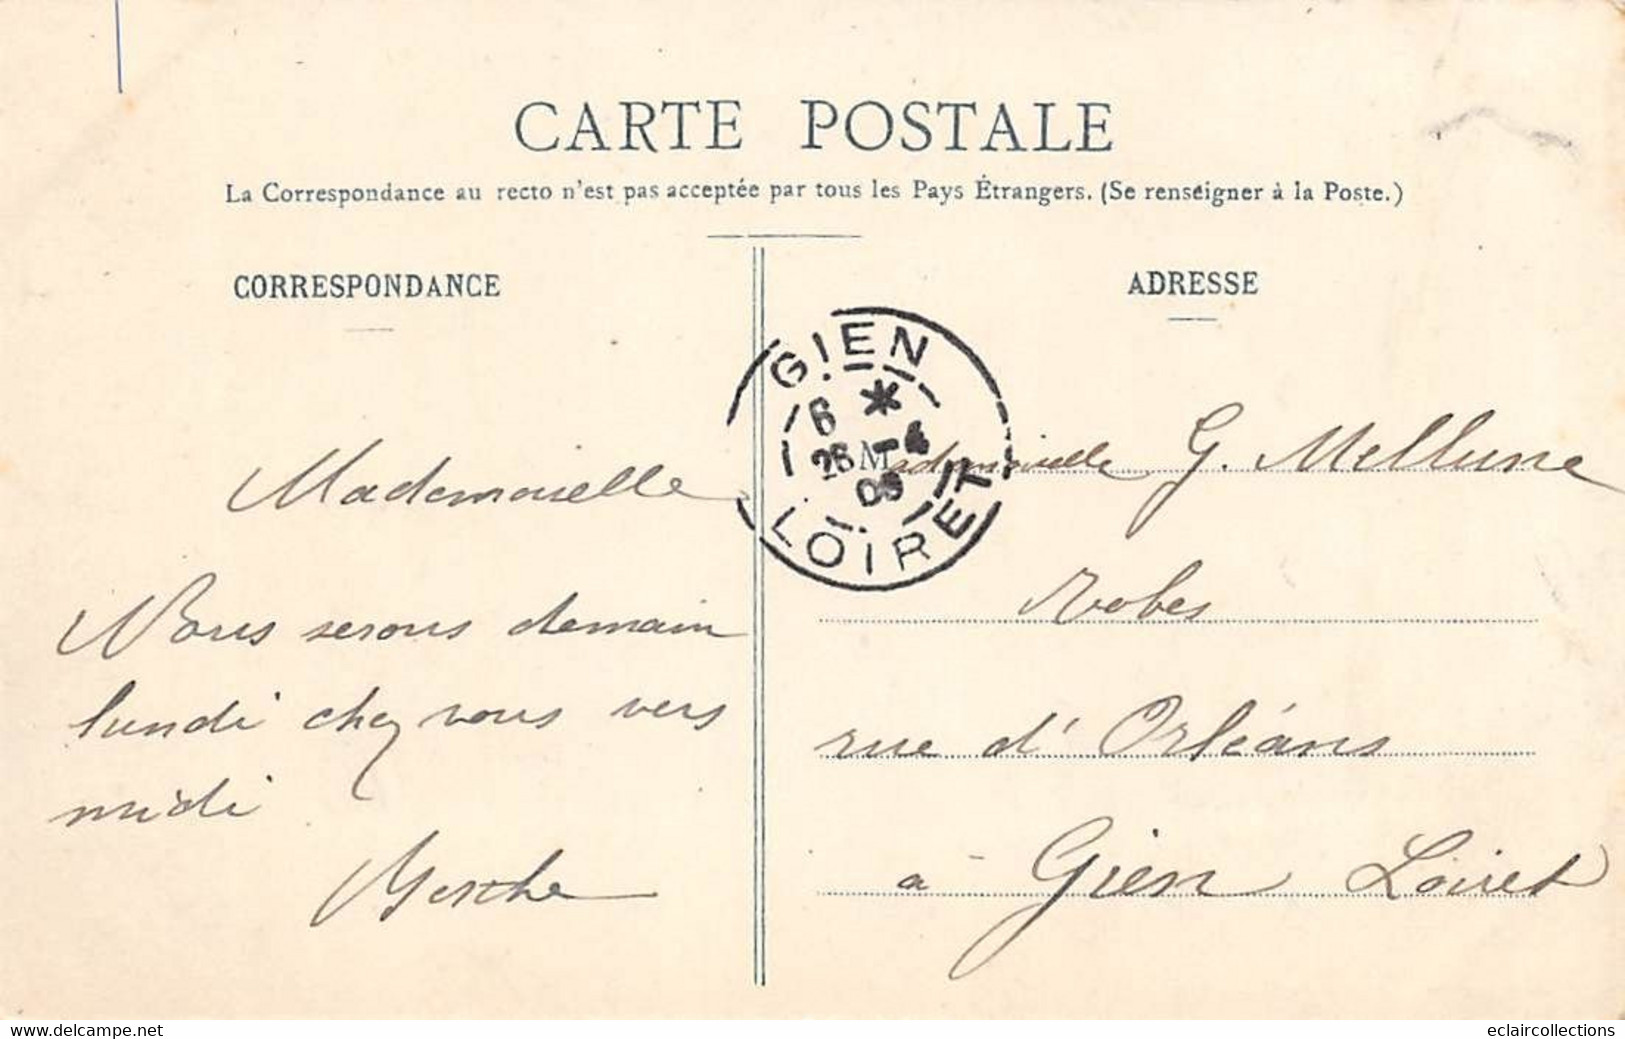 CARTE POSTALE
La Correspondance au recto n'est pas acceptée par tous les Pays Étrangers. (Se renseigner à la Poste.)
CORRESPONDANCE
Mademoiselle
Nous serons demain
lundi chez vous vers
midi
Berthe
ADRESSE
GIEN
6 *
26 -4
LOIRET
Mademoiselle G. Mellune
Robes
rue d'Orléans
à Gien Loiret
www.delcampe.net
eclaircollections